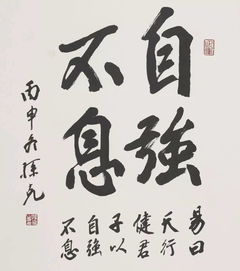 自強
不息
易曰
天行
健君
子以
自強
不息
丙申冬孫亮